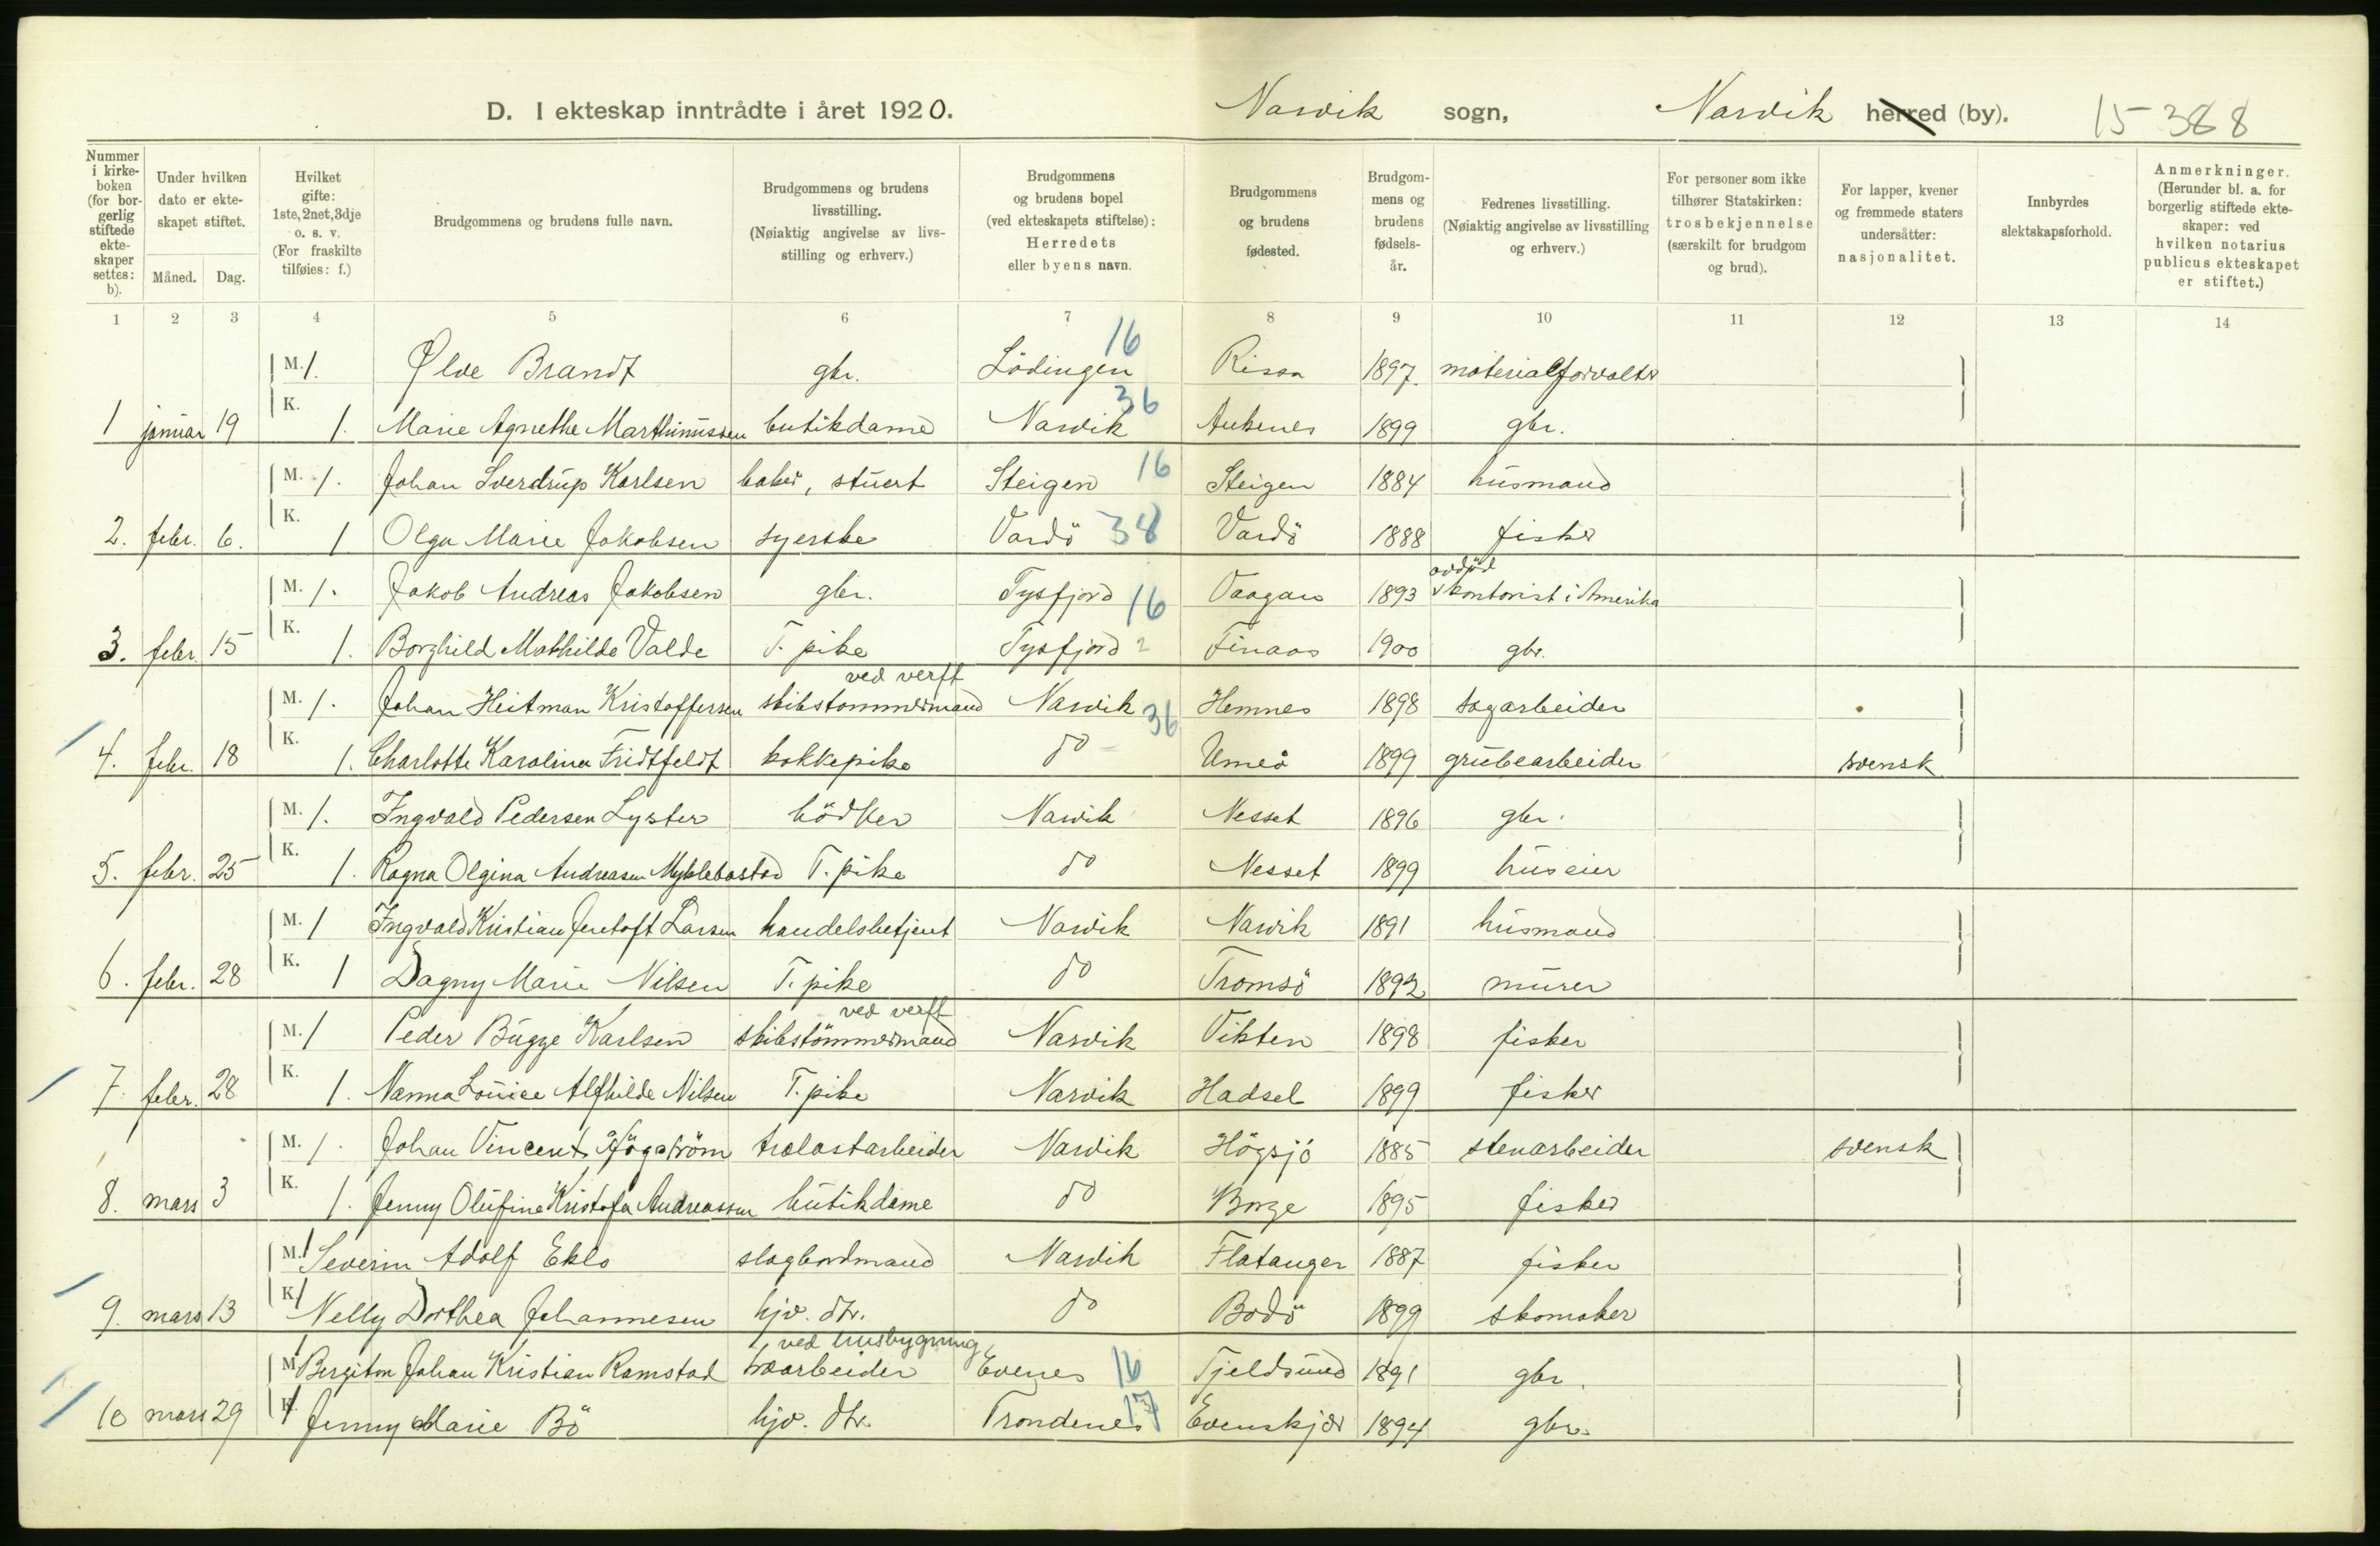 D. I ekteskap inntrådte i året 1920. Narvik sogn, Narvik herred (by). 15-388
Nummer i kirke-boken (for bor-gerlig stiftede ekte-skaper settes: b).
Under hvilken dato er ekte-skapet stiftet.
Måned. Dag.
Hvilket gifte: 1ste, 2net, 3dje o. s. v. (For fraskilte tilføies: f.)
Brudgommens og brudens fulle navn.
Brudgommens og brudens livsstilling. (Nøiaktig angivelse av livs-stilling og erhverv.)
Brudgommens og brudens bopel (ved ekteskapets stiftelse): Herredets eller byens navn.
Brudgommens og brudens fødested.
Brudgom-mens og brudens fødsels-år.
Fedrenes livsstilling. (Nøiaktig angivelse av livsstilling og erhverv.)
For personer som ikke tilhører Statskirken: trosbekjennelse (særskilt for brudgom og brud).
For lapper, kvener og fremmede staters undersåtter: nasjonalitet.
Innbyrdes slektskapsforhold.
Anmerkninger. (Herunder bl. a. for borgerlig stiftede ekte-skaper: ved hvilken notarius publicus ekteskapet er stiftet.)
1 2 3 4 5 6 7 8 9 10 11 12 13 14
16
M. 1. Ølve Brandt gbr. Lödingen Rissa 1897. materialforvalter
36
1 januar 19 K. 1. Marie Agnethe Marthinussen butikdame Narvik Ankenes 1899 gbr.
M. 1. Johan Sverdrup Karlsen baker, stuert Steigen 16 Steigen 1884 husmand
2. febr. 6. K. 1 Olga Marie Jakobsen syerske Vardö 38 Vardö 1888 fisker
avdød
M. 1. Jakob Andreas Jakobsen gbr. Tysfjord 16 Vaagan 1893 kontorist i Amerika
3. febr. 15 K. 1. Borghild Mathilde Valde T. pike Tysfjord 2 Finaas 1900 gbr.
ved verft
M. 1. Johan Heitman Kristoffersen skibstømmermand Narvik 36 Hemnes 1898 sagarbeider
4. febr. 18 K. 1. Charlotte Karolina Fridtfeldt kokkepike do Umeå 1899 grubearbeider svensk
M. 1. Ingvald Pedersen Lyster bödker Narvik Nesset 1896 gbr.
5. febr. 25 K. 1. Ragna Olgina Andreasen Myklebostad T. pike do Nesset 1899 huseier
M. 1 Ingvald Kristian Jentoft Larsen handelsbetjent Narvik Narvik 1891 husmand
6. febr. 28 K. 1 Dagny Marie Nilsen T. pike do Tromsö 1892 murer
ved verft
M. 1 Peder Bugge Karlsen skibstömmermand Narvik Vikten 1898 fisker
7. febr. 28 K. 1. Nanna Louise Alfhilde Nilsen T. pike Narvik Hadsel 1899 fisker
M. 1. Johan Vincent Högström trælastarbeider Narvik Högsjö 1885 stenarbeider svensk
8. mars 3 K. 1. Jenny Olufine Kristofa Andreassen butikdame do Borge 1895 fisker
M. 1 Severin Adolf Eklo slagbordmand Narvik Flatanger 1887 fisker
9. mars 13 K. 1 Nelly Dorthea Johannesen hjv. dtr. do Bodö 1899 skomaker
ved husbygning
M 1 Bergiton Johan Kristian Ramstad træarbeider Evenes 16 Tjeldsund 1891 gbr.
10 mars 29 K. 1 Jenny Marie Bö hjv. dtr. Trondenes 17 Evenskjær 1894 gbr.